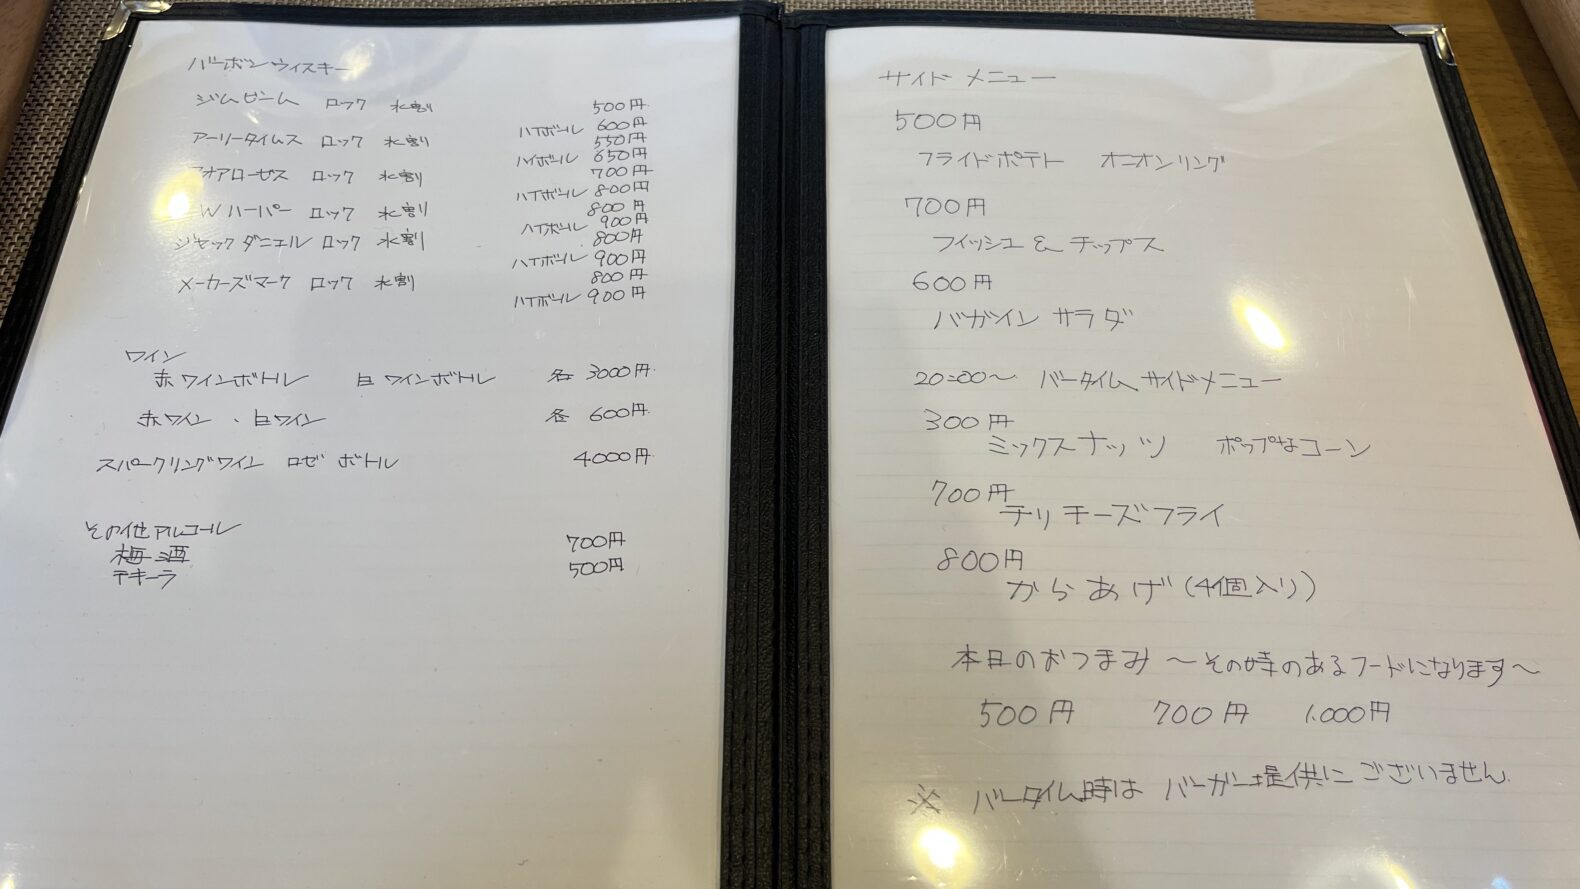 バーボンウィスキー
ジムビーム ロック 水割 500円
ハイボール 600円
アーリータイムス ロック 水割 550円
ハイボール 650円
フォアローゼス ロック 水割 700円
ハイボール 800円
Wハーパー ロック 水割 800円
ハイボール 900円
ジャックダニエル ロック 水割 800円
ハイボール 900円
メーカーズマーク ロック 水割 800円
ハイボール 900円
ワイン
赤ワインボトル 白ワインボトル 各 3000円
赤ワイン、白ワイン 各 600円
スパークリングワイン ロゼ ボトル 4000円
その他アルコール
梅酒 700円
テキーラ 500円
サイドメニュー
500円
フライドポテト オニオンリング
700円
フィッシュ&チップス
600円
バガイン サラダ
20:00〜 バータイムサイドメニュー
300円
ミックスナッツ ポップなコーン
700円
チリチーズフライ
800円
からあげ(4個入り)
本日のおつまみ 〜その時のあるフードになります〜
500円 700円 1.000円
※ バータイム時は バーガー提供にございません